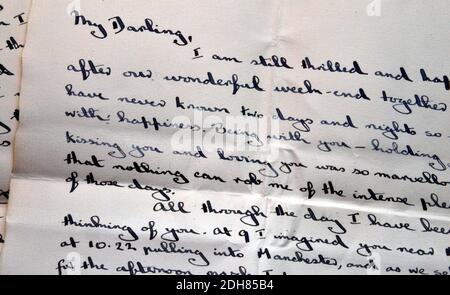 My Darling,
I am still thrilled and hap
after our wonderful week-end together
have never known two days and nights so
with happiness. Being with you – holding
kissing you and loving you was so marvello
that nothing can rob me of the intense ple
of those days.
All through the day I have bee
thinking of you. At 9 I imagined you near
at 10.22 pulling into Manchester, and as we se
for the afternoon
alamy
Image ID: 2DH85B4
www.alamy.com